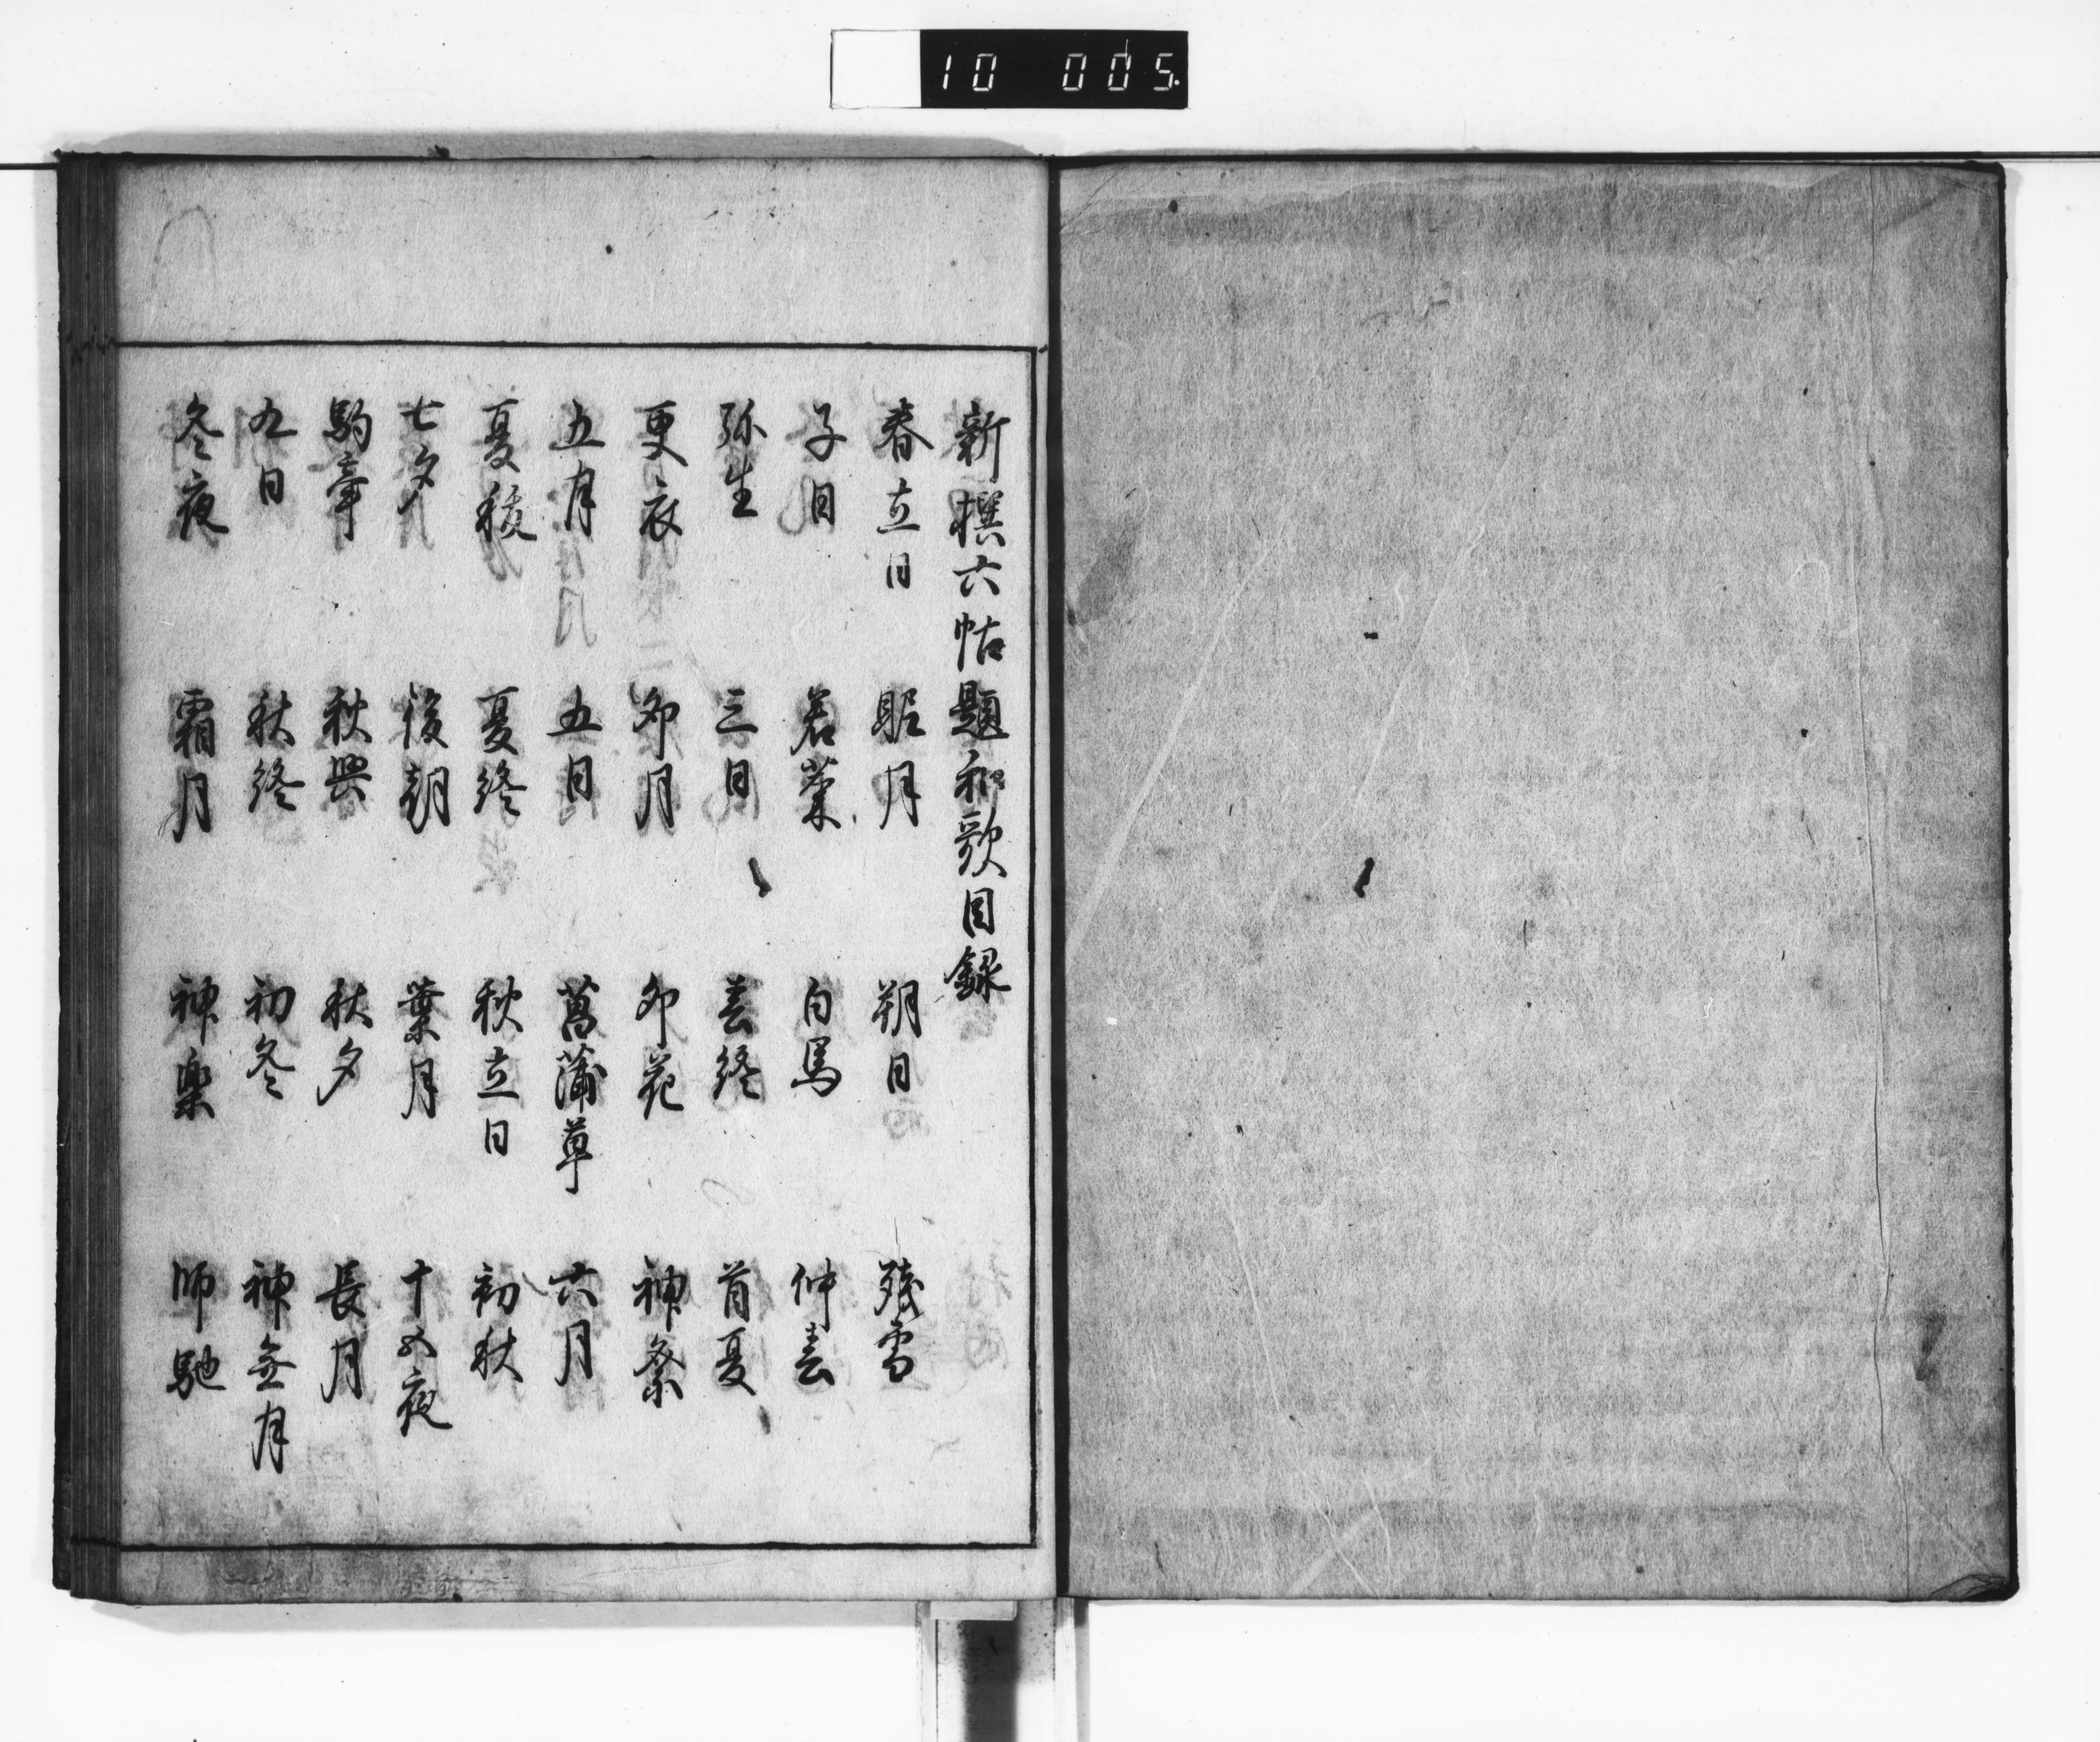 10 005
新撰六帖題和歌目録
春立日 睨月 朔日 残雪
子日 若菜 白馬 仲春
弥生 三日 春終 首夏
更衣 卯月 卯花 神祭
五月 五日 菖蒲草 六月
夏稜 夏終 秋立日 初秋
七夕 後朝 葉月 十五夜
駒牽 秋興 秋夕 長月
九日 秋終 初冬 神無月
冬夜 霜月 神楽 師馳